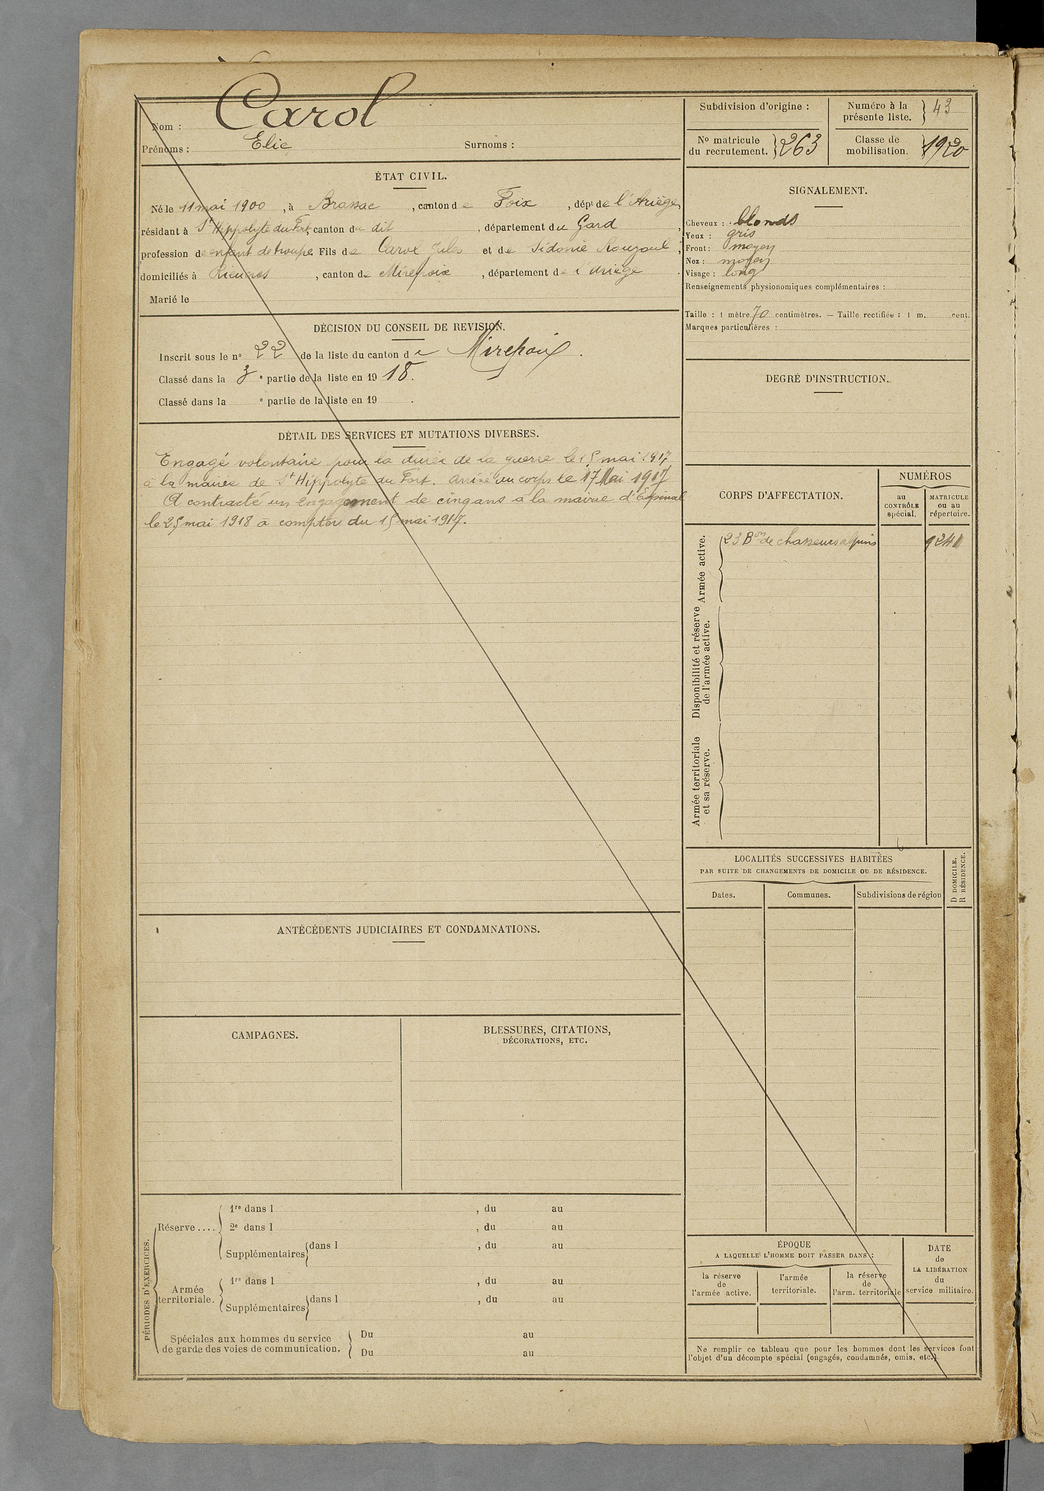 Nom : Carol
Prénoms : Elie Surnoms :
Subdivision d'origine :
Numéro à la présente liste. } 43
No matricule du recrutement. } 263
Classe de mobilisation. } 1920
ÉTAT CIVIL.
Né le 11 mai 1900, à Brassac, canton de Foix, dépt de l'Ariège,
résidant à St Hippolyte du Fort canton du dit, département du Gard,
profession d'enfant de troupe Fils de Carol Jules et de Sidonie Rouzoul,
domiciliés à Rieucros, canton de Mirepoix, département de l'Ariège.
Marié le
SIGNALEMENT.
Cheveux : blonds
Yeux : gris
Front : moyen
Nez : moyen
Visage : long
Renseignements physionomiques complémentaires :
Taille : 1 mètre 70 centimètres. — Taille rectifiée : 1 m. cent.
Marques particulières :
DÉCISION DU CONSEIL DE REVISION.
Inscrit sous le no 22 de la liste du canton de Mirepoix.
Classé dans la 3e partie de la liste en 1918.
Classé dans la e partie de la liste en 19 .
DEGRÉ D'INSTRUCTION.
DÉTAIL DES SERVICES ET MUTATIONS DIVERSES.
Engagé volontaire pour la durée de la guerre le 15 mai 1917
à la mairie de St Hippolyte du Fort. arrivé au corps le 17 Mai 1917
A contracté un engagement de cinq ans à la mairie d'Epinal
le 25 mai 1918 à compter du 15 mai 1917.
CORPS D'AFFECTATION.
NUMÉROS
au CONTRÔLE spécial.
MATRICULE ou au répertoire.
Armée active.
23 Bon de chasseurs alpins 9241
Disponibilité et réserve de l'armée active.
Armée territoriale et sa réserve.
LOCALITÉS SUCCESSIVES HABITÉES
PAR SUITE DE CHANGEMENTS DE DOMICILE OU DE RÉSIDENCE.
D DOMICILE.
R RÉSIDENCE.
Dates. Communes. Subdivisions de région
ANTÉCÉDENTS JUDICIAIRES ET CONDAMNATIONS.
CAMPAGNES.
BLESSURES, CITATIONS,
DÉCORATIONS, ETC.
PÉRIODES D'EXERCICES.
Réserve ....
1re dans l , du au
2e dans l , du au
Supplémentaires { dans l , du au
Armée territoriale.
1re dans l , du au
Supplémentaires { dans l , du au
Spéciales aux hommes du service
de garde des voies de communication.
Du au
Du au
ÉPOQUE
A LAQUELLE L'HOMME DOIT PASSER DANS :
la réserve de l'armée active.
l'armée territoriale.
la réserve de l'arm. territoriale
DATE de LA LIBÉRATION du service militaire.
Ne remplir ce tableau que pour les hommes dont les services font
l'objet d'un décompte spécial (engagés, condamnés, omis, etc.).